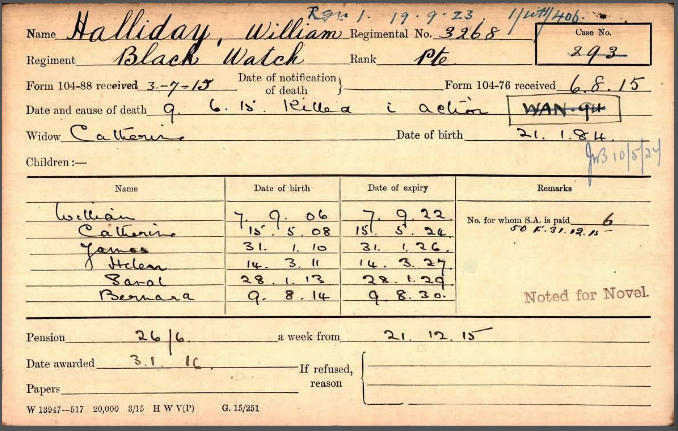 Regn 1. 19.9.23
Name Halliday, William Regimental No. 3268
Case No. 293
Regiment Black Watch Rank Pte
Form 104-88 received 3-7-15 Date of notification of death } Form 104-76 received 6.8.15
Date and cause of death 9 6. 15. Killed i action WAN-94
Widow Catherine Date of birth 21. 1. 84.
10/5/27
Children :—
Name Date of birth Date of expiry Remarks
William 7. 9. 06 7. 9. 22
Catherine 15. 5. 08 15. 5. 24 No. for whom S.A. is paid 6
James 31. 1. 10 31. 1. 26.
Helen 14. 3. 11 14. 3. 27
Sarah 28. 1. 13 28. 1. 29
Bernard 9. 8. 14 9. 8. 30.
Noted for Novel.
Pension 26/6. a week from 21. 12. 15
Date awarded 3. 1. 16. If refused, reason
Papers
W 13947—517 20,000 3/15 H W V(P) G. 15/251